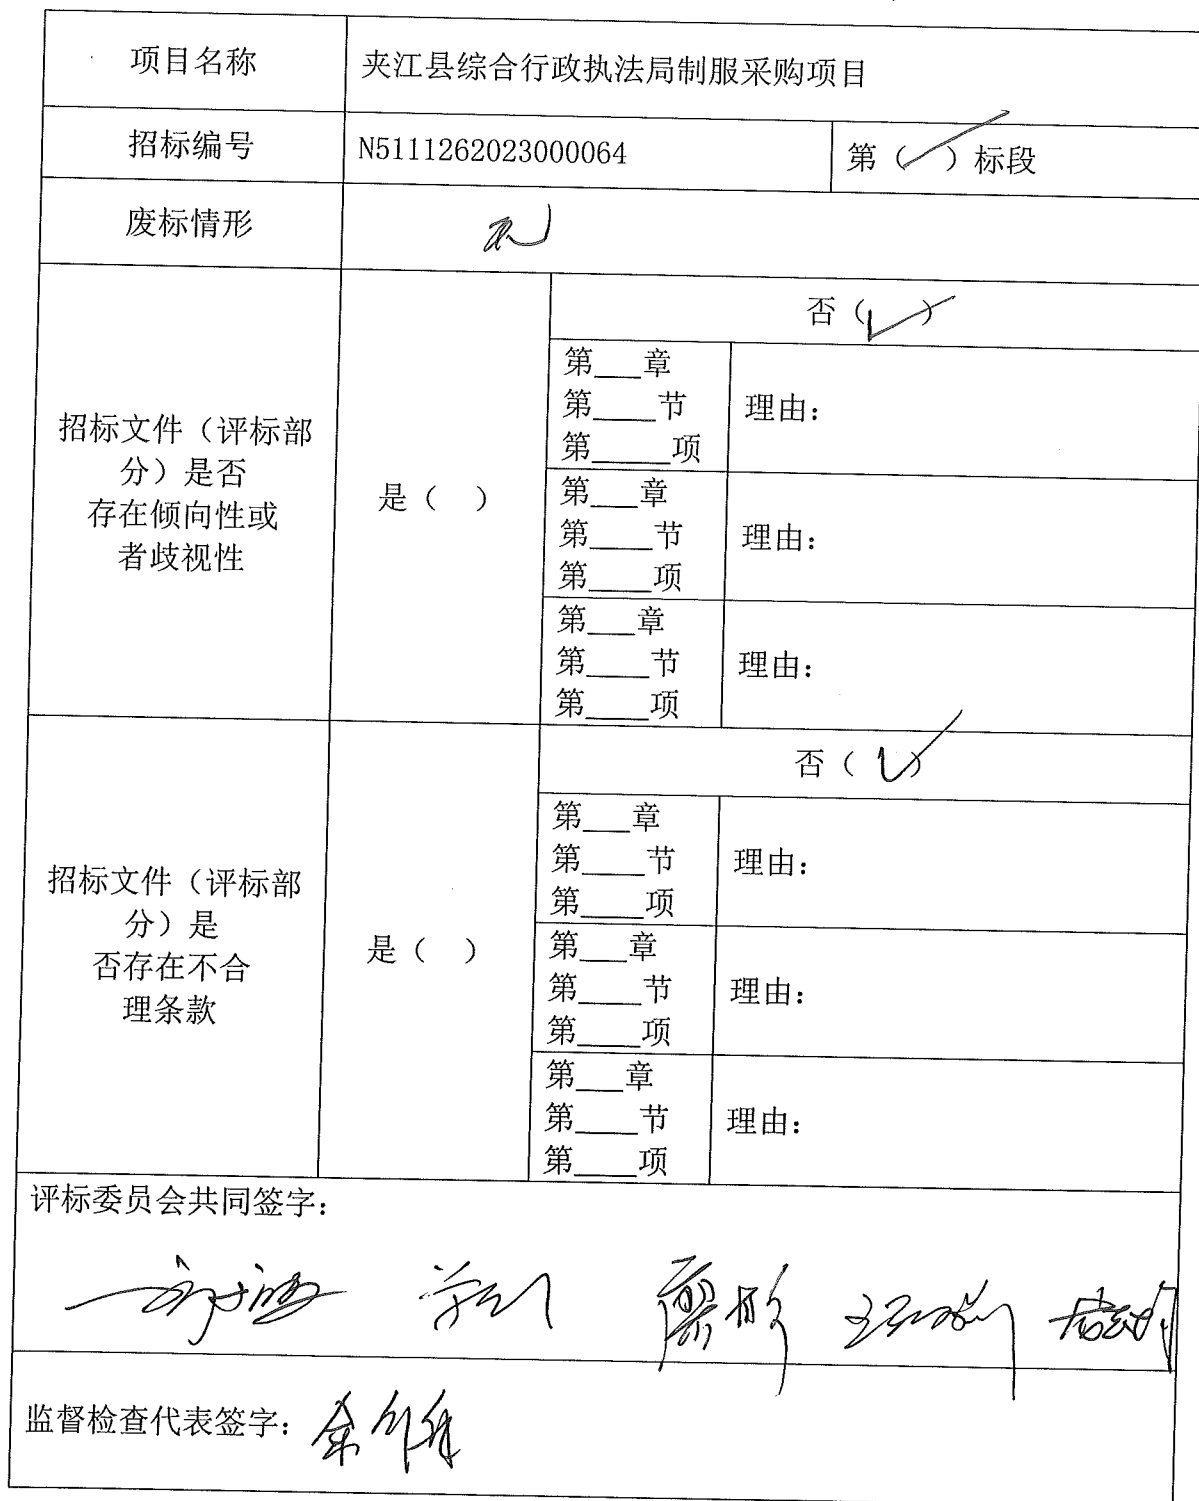 项目名称
夹江县综合行政执法局制服采购项目
招标编号
N5111262023000064
第（ ）标段
废标情形
无
招标文件（评标部
分）是否
存在倾向性或
者歧视性
是（ ）
否（✓）
第___章
第____节
第_____项
理由：
第___章
第____节
第____项
理由：
第___章
第____节
第____项
理由：
招标文件（评标部
分）是
否存在不合
理条款
是（ ）
否（✓）
第___章
第____节
第____项
理由：
第___章
第____节
第____项
理由：
第___章
第____节
第____项
理由：
评标委员会共同签字：
监督检查代表签字：